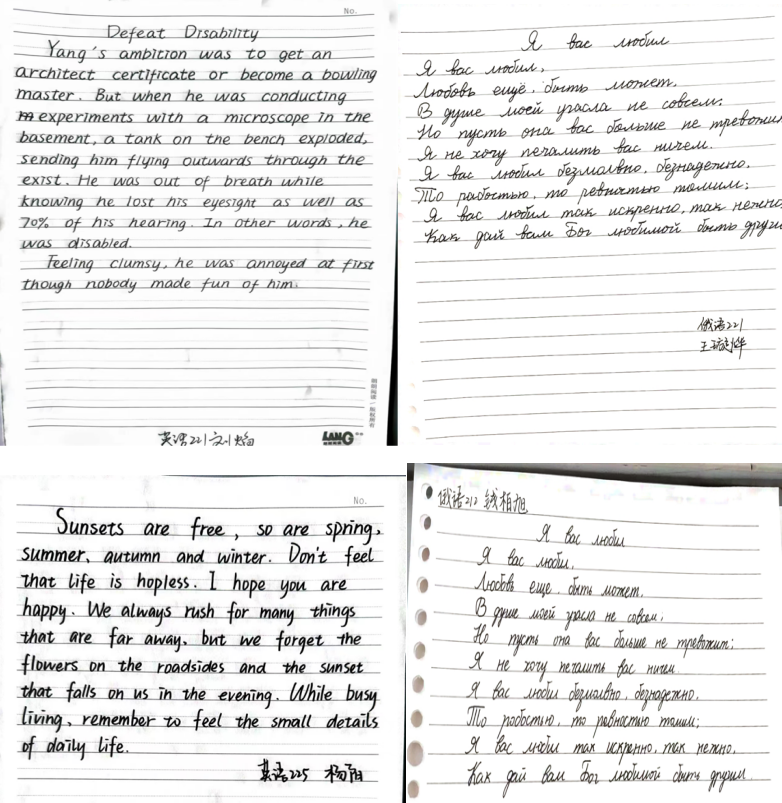 No.
Defeat Disability
Yang's ambition was to get an
architect certificate or become a bowling
master. But when he was conducting
experiments with a microscope in the
basement, a tank on the bench exploded,
sending him flying outwards through the
exist. He was out of breath while
knowing he lost his eyesight as well as
70% of his hearing. In other words, he
was disabled.
Feeling clumsy, he was annoyed at first
though nobody made fun of him.
英语221 刘
LANG
Я вас любил
Я вас любил,
Любовь ещё, быть может,
В душе моей угасла не совсем;
Но пусть она вас больше не тревожи
Я не хочу печалить вас ничем.
Я вас любил безмолвно, безнадежно,
То робостью, то ревностью томим;
Я вас любил так искренно, так нежно,
Как дай вам Бог любимой быть други
俄语221
王
No.
Sunsets are free, so are spring,
summer, autumn and winter. Don't feel
that life is hopless. I hope you are
happy. We always rush for many things
that are far away, but we forget the
flowers on the roadsides and the sunset
that falls on us in the evening. While busy
living, remember to feel the small details
of daily life.
英语225 杨阳
俄语212 钱柏旭
Я вас любил
Я вас любил,
Любовь еще, быть может,
В душе моей угасла не совсем;
Но пусть она вас больше не тревожит;
Я не хочу печалить вас ничем
Я вас любил безмолвно, безнадежно,
То робостью, то ревностью томим;
Я вас любил так искренно, так нежно,
Как дай вам Бог любимой быть другим